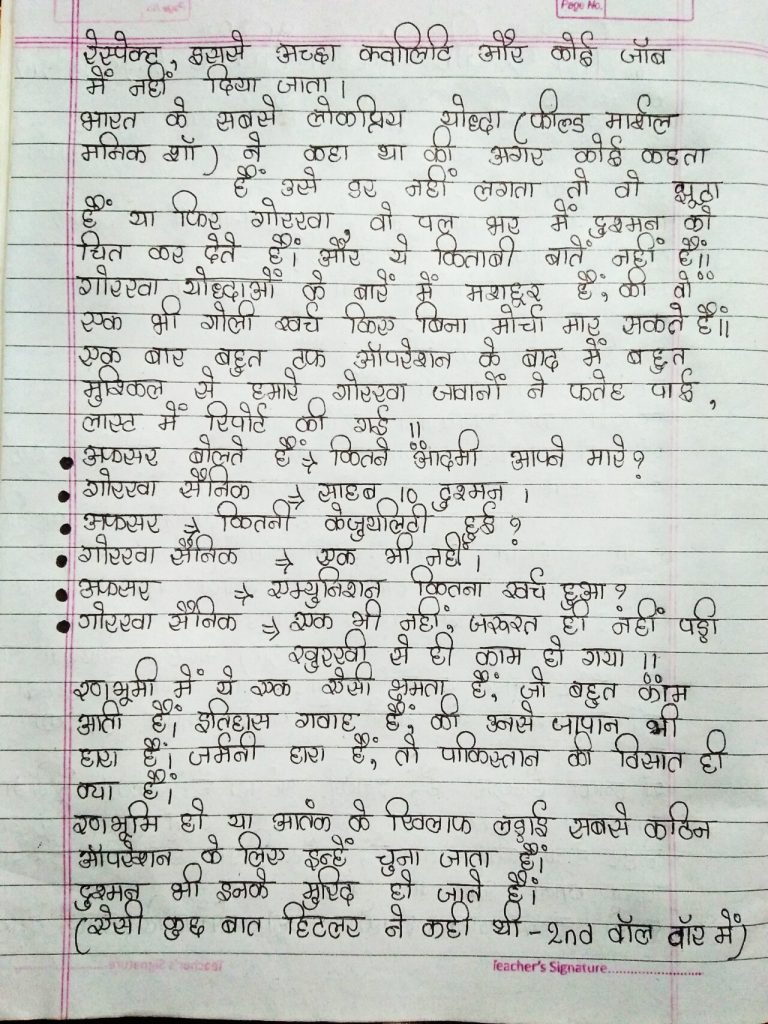 Page No.
रेस्पेक्ट, इससे अच्छा क्वालिटि और कोई जॉब
में नहीं दिया जाता।
भारत के सबसे लोकप्रिय योध्दा (फील्ड मार्शल
मनिक शॉ) ने कहा था की अगर कोई कहता
हैं उसे डर नहीं लगता तो वो झूठा
हैं या फिर गोरखा, वो पल भर में दुश्मन को
चित कर देते हैं। और ये किताबी बातें नहीं हैं॥
गोरखा योध्दाओं के बारें में मशहूर है, की वो
एक भी गोली खर्च किए बिना मोर्चा मार सकते हैं॥
एक बार बहुत टफ ऑपरेशन के बाद में बहुत
मुश्किल से हमारे गोरखा जवानों ने फतेह पाई,
लास्ट में रिपोर्ट की गई॥
• अफसर बोलते हैं → कितने आदमी आपने मारे?
• गोरखा सैनिक → साहब 10 दुश्मन।
• अफसर → कितनी केजुयलिटी हुई?
• गोरखा सैनिक → एक भी नहीं।
• अफसर → एम्युनिशन कितना खर्च हुआ?
• गोरखा सैनिक → एक भी नहीं, जरूरत ही नहीं पड़ी
खुरखी से ही काम हो गया॥
रणभूमी में ये एक ऐसी क्षमता है, जो बहुत काम
आती है। इतिहास गवाह हैं, की उनसे जापान भी
हारा हैं। जर्मनी हारा हैं, तो पाकिस्तान की विसात ही
क्या हैं।
रणभूमि हो या आतंक के खिलाफ लड़ाई सबसे कठिन
ऑपरेशन के लिए इन्हें चुना जाता हैं।
दुश्मन भी इनके मुरिद हो जाते हैं।
(ऐसी कुछ बात हिटलर ने कही थी - 2nd वॉल वॉर में)
Teacher's Signature